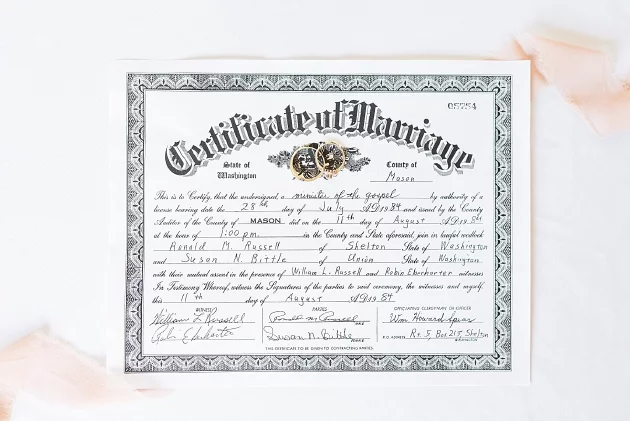 05754
Certificate of Marriage
State of Washington
County of Mason
This is to Certify, that the undersigned, a minister of the gospel by authority of a
license bearing date the 28th day of July A.D. 1984 and issued by the County
Auditor of the County of MASON did on the 11th day of August A.D. 1984
at the hour of 1:00 p.m. in the County and State aforesaid, join in lawful wedlock
Ronald M. Russell of Shelton State of Washington
and Susan N. Bittle of Union State of Washington
with their mutual assent in the presence of William L. Russell and Robin Eberharter witnesses
In Testimony Whereof, witness the Signatures of the parties to said ceremony, the witnesses and myself,
this 11th day of August A.D. 1984
WITNESS
William L. Russell
Robin Eberharter
PARTIES
Ronald M. Russell
Susan N. Bittle
OFFICIATING CLERGYMAN OR OFFICER
Wm. Howard Spear
P.O. ADDRESS Rt. 5, Box 215, Shelton
WASHINGTON
THIS CERTIFICATE TO BE GIVEN TO CONTRACTING PARTIES